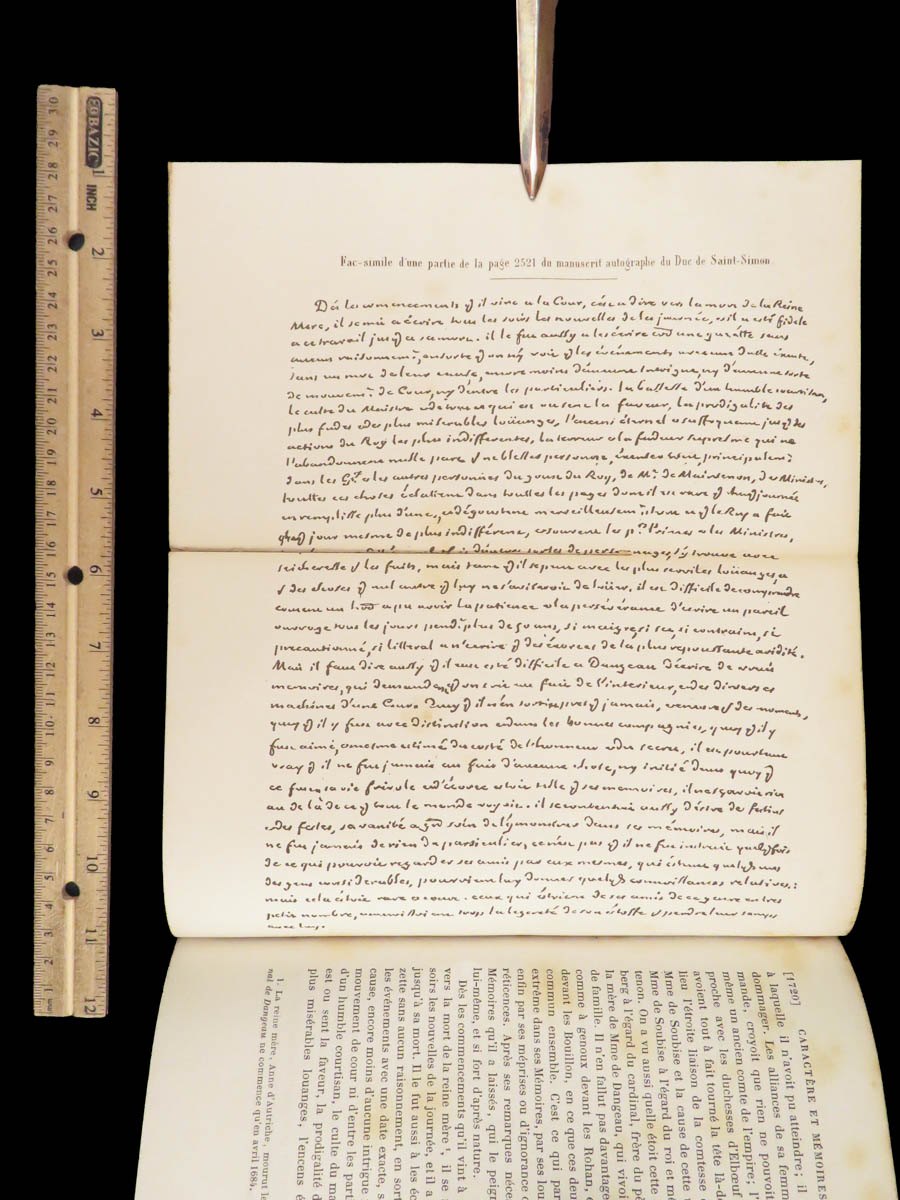 Fac-simile d'une partie de la page 2521 du manuscrit autographe du Duc de Saint-Simon.
Dés les commencements q il vint a la Cour, c'est a dire vers la mort de la Reine
Mere, il se mit a écrire tous les soirs les nouvelles de la journée, et il a esté fidele
a ce travail jusq a sa mort. il le fut aussy a les écrire une gazette sans
aucun raisonnem^t, ensorte q on n'y voit q les événements avec une datte exacte,
sans un mot de leur cause, encore moins d'aucune intrigue, ny d'aucune sorte
de mouvem^t de Cour, ny d'entre les particuliers. la bassesse d'un humble courtisan,
le culte du Maistre et de tout ce qui est ou sent la faveur, la prodigalité des
plus fades et des plus miserables loüanges, l'encens éternel et suffoquant jusq des
actions du Roy les plus indifferentes, la terreur et la fadeur supresme qui ne
l'abandonnent nulle part ne blesser personne, excuser tout, principalem^t
dans les G^x et les autres personnes du goust du Roy, de M^e de Maintenon, des Ministres,
touttes ces choses éclatent dans touttes les pages dont il est rare q chaq journée
en remplisse plus d'une, et dégoustent merveilleusem^t. tout ce q le Roy a fait
chaq jour mesme de plus indifférent, et souvent les p^rs Princes et les Ministres,
d'autres sortes de personnages, s'y trouve avec
seicheresse les faits, mais tant q il se peut avec les plus serviles loüanges, et
des choses q nul autre q luy ne s'aviseroit de loüer. il est difficile de comprendre
comment un a pu avoir la patience et la persévérance d'écrire un pareil
ouvrage tous les jours pend^t plus de 50 ans, si maigre, si sec, si contraint, si
precautionné, si litteral a n'écrire q des écorces de la plus repoussante aridité.
Mais il faut dire aussy q il eust esté difficile a Dangeau d'écrire de vrais
memoires, qui demandent q on soit au fait de l'interieur, et des diverses
machines d'une Cour. Quoy q il n'en sortist presq jamais, et encore des moments,
quoy q il y fust avec distinction et dans les bonnes compagnies, quoy q il y
fust aimé, et mesme estimé du costé de l'honneur et du secret, il est pourtant
vray q il ne fut jamais au fait d'aucune chose, ny initié dans quoy q
ce fust. sa vie frivole et d'écorce estoit telle q ses memoires, il ne sçavoit rien
au de là de ce q tout le monde voyoit. il se contentoit aussy d'estre des festins
et des festes, sa vanité a g^d soin de l'y monstrer dans ses mémoires, mais il
ne fut jamais de rien de particulier. ce n'est pas q il ne fust instruit quelq^fois
de ce qui pouvoit regarder ses amis par eux mesmes, qui estant quelq^s uns
des gens considerables, pouvoient luy donner quelq^s connoissances relatives :
mais cela estoit rare et court. ceux qui estoient de ses amis de ce genre en tres
petit nombre, connoissoient trop la legereté de son étoffe perdre leur temps
avec luy.
[1720] CARACTÈRE ET MÉMOIRES
à laquelle il n'avoit pu atteindre ; il
dommager. Les alliances de sa femme
mande, croyoit que rien ne pouvoit
même un ancien comte de l'empire ; l'
proche avec les duchesses d'Elbœuf
avoient tout à fait tourné la tête là-d
lieu l'étroite liaison de la comtesse
Mme de Soubise et la cause de cette
Mme de Soubise à l'égard du roi et m
tenon. On a vu aussi quelle étoit cette
berg à l'égard du cardinal, frère du pè
la mère de Mme de Dangeau, qui vivoi
de famille. Il n'en fallut pas davantage
comme à genoux devant les Rohan,
devant les Bouillon, en ce que ces deux
commun ensemble. C'est ce qui par
extrême dans ses Mémoires, par ses lou
enfin par ses méprises ou d'ignorance o
réticences. Après ses remarques néce
Mémoires qu'il a laissés, qui le peign
lui-même, et si fort d'après nature.
Dès les commencements qu'il vint à
vers la mort de la reine mère ¹, il se m
soirs les nouvelles de la journée, et il a
jusqu'à sa mort. Il le fut aussi à les éc
zette sans aucun raisonnement, en sort
les événements avec une date exacte, s
cause, encore moins d'aucune intrigue
mouvement de cour ni d'entre les parti
d'un humble courtisan, le culte du ma
est ou sent la faveur, la prodigalité d
plus misérables louanges, l'encens é
1. La reine mère, Anne d'Autriche, mourut le
nal de Dangeau ne commence qu'en avril 1684.
BAZIC
INCH
1 2 3 4 5 6 7 8 9 10 11 12
30 29 28 27 26 25 24 23 22 21 20 19 18 17 16 15 14 13 12 11 10 9 8 7 6 5 4 3 2 1